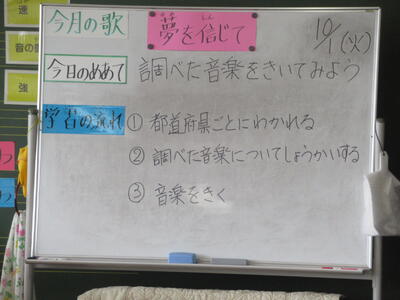 今月の歌
夢を信じて
しん
10/1(火)
今日のめあて
調べた音楽をきいてみよう
学習の流れ
① 都道府県ごとにわかれる
② 調べた音楽についてしょうかいする
③ 音楽をきく
速
強